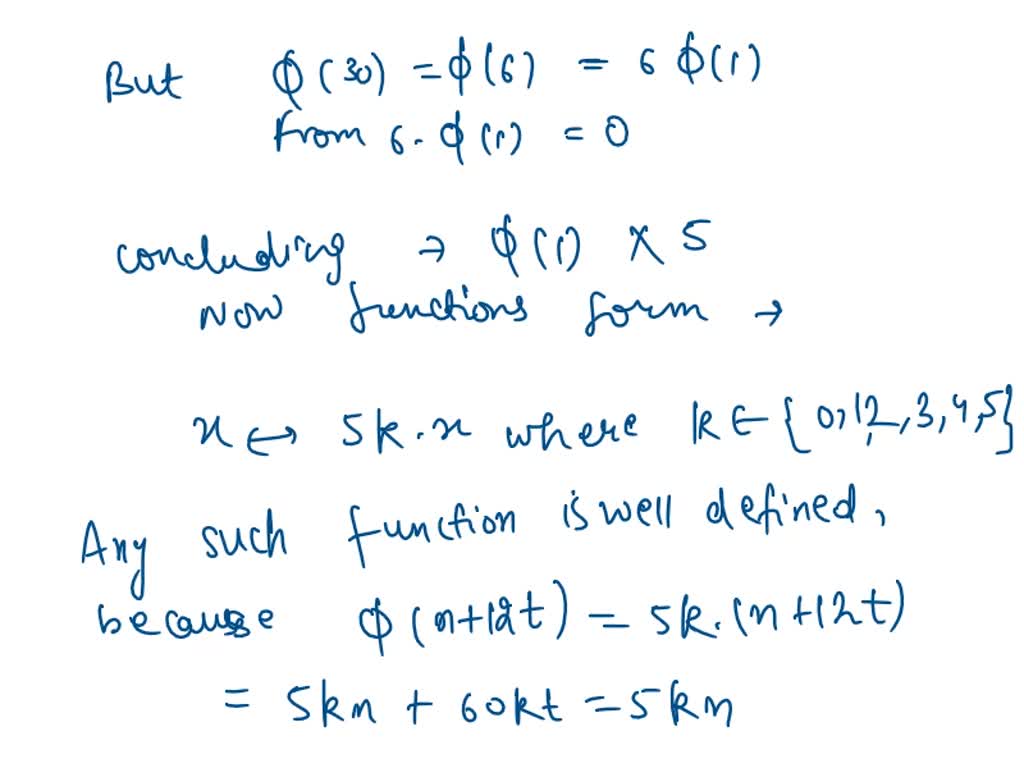 But ϕ(30) = ϕ(6) = 6 ϕ(1)
from 6. ϕ(1) = 0
concluding → ϕ(1) × 5
Now functions form →
x ↔ 5k.x where k ∈ {0,1,2,3,4,5}
Any such function is well defined,
because ϕ(n+12t) = 5k.(n+12t)
= 5kn + 60kt = 5kn